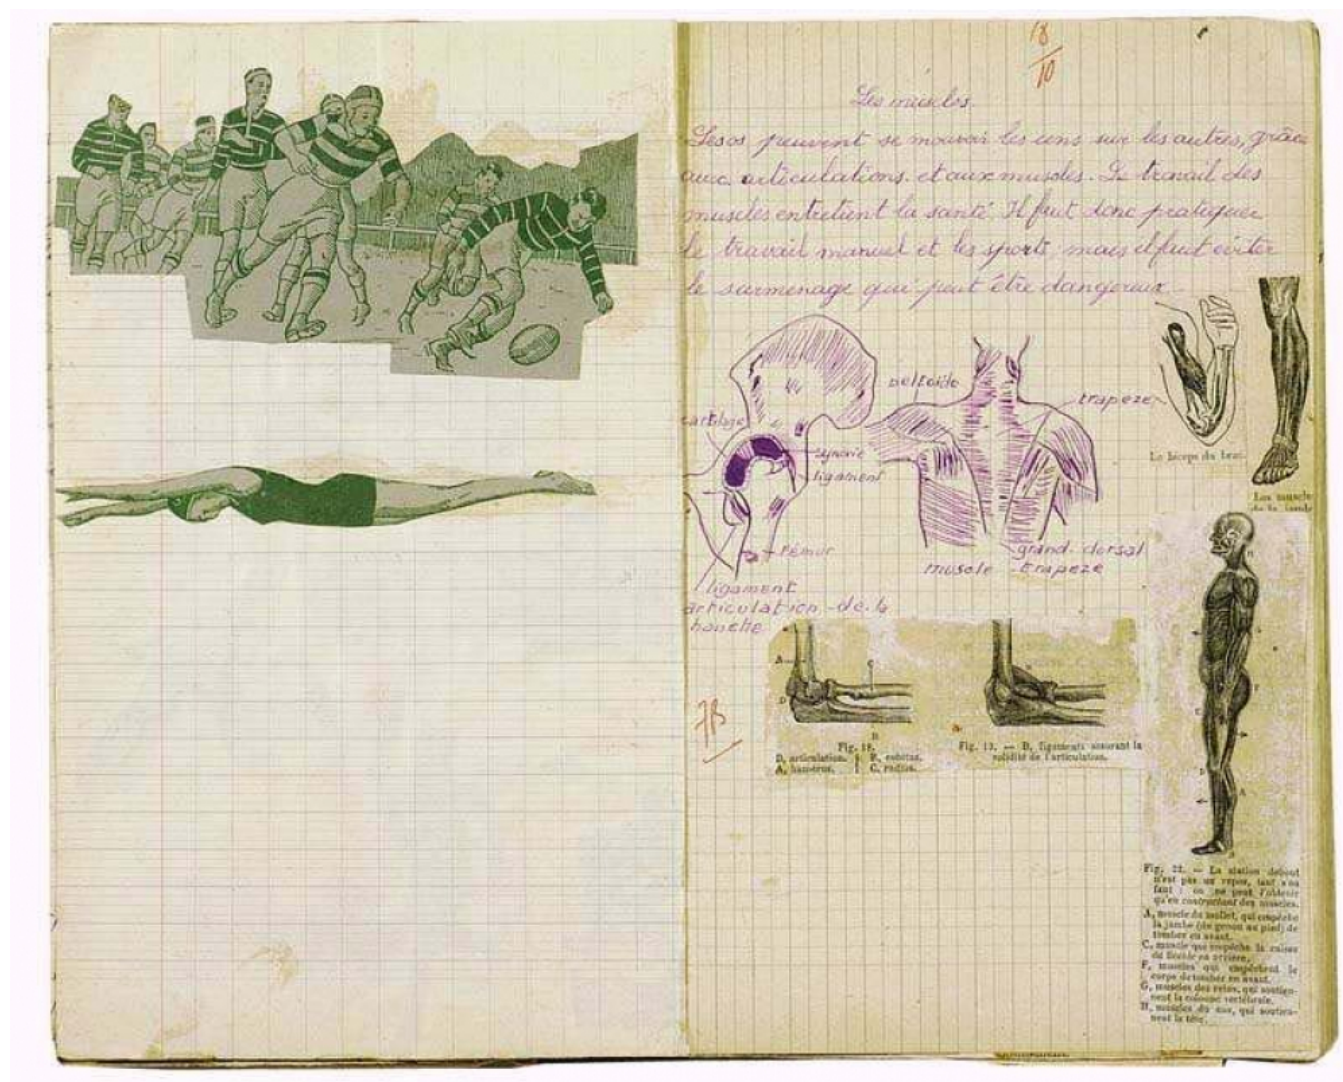 18
10
Les muscles.
Les os peuvent se mouvoir les uns sur les autres, grâce
aux articulations et aux muscles. Le travail des
muscles entretient la santé. Il faut donc pratiquer
le travail manuel et les sports, mais il faut éviter
le surmenage qui peut être dangereux.
deltoïde
trapeze
cartilage
synovie
ligament
Le biceps du bras.
Les muscles
de la jambe
fémur
grand dorsal
muscle trapeze
ligament
articulation de la
hanche
A
C
D
B
Fig. 18.
D, articulation.
A, humérus.
B, cubitus.
C, radius.
Fig. 13. — B, ligaments assurant la
solidité de l'articulation.
Fig. 22. — La station debout
n'est pas un repos, tant s'en
faut : on ne peut l'obtenir
qu'en contractant des muscles.
A, muscle du mollet, qui empêche
la jambe (du genou au pied) de
tomber en avant.
C, muscle qui empêche la cuisse
de fléchir en arrière.
F, muscles qui empêchent le
corps de tomber en avant.
G, muscles des reins, qui soutien-
nent la colonne vertébrale.
H, muscles du cou, qui soutien-
nent la tête.